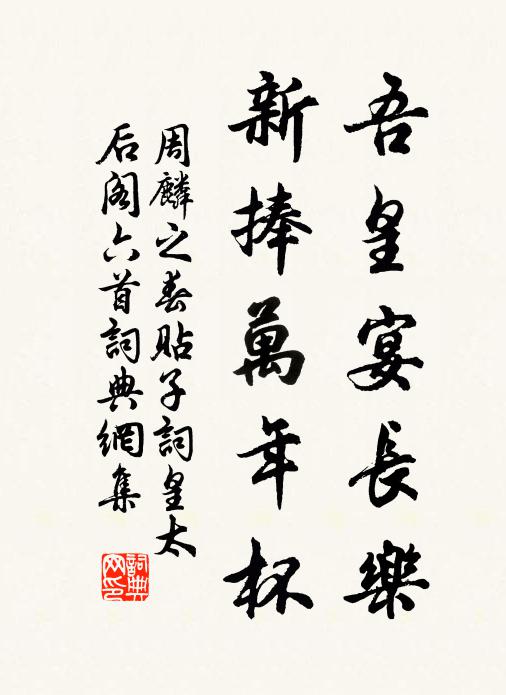 吾皇宴長樂
新捧萬年杯
周麟之春貼子詞皇太
后閣六首詞典網集
詞典網印